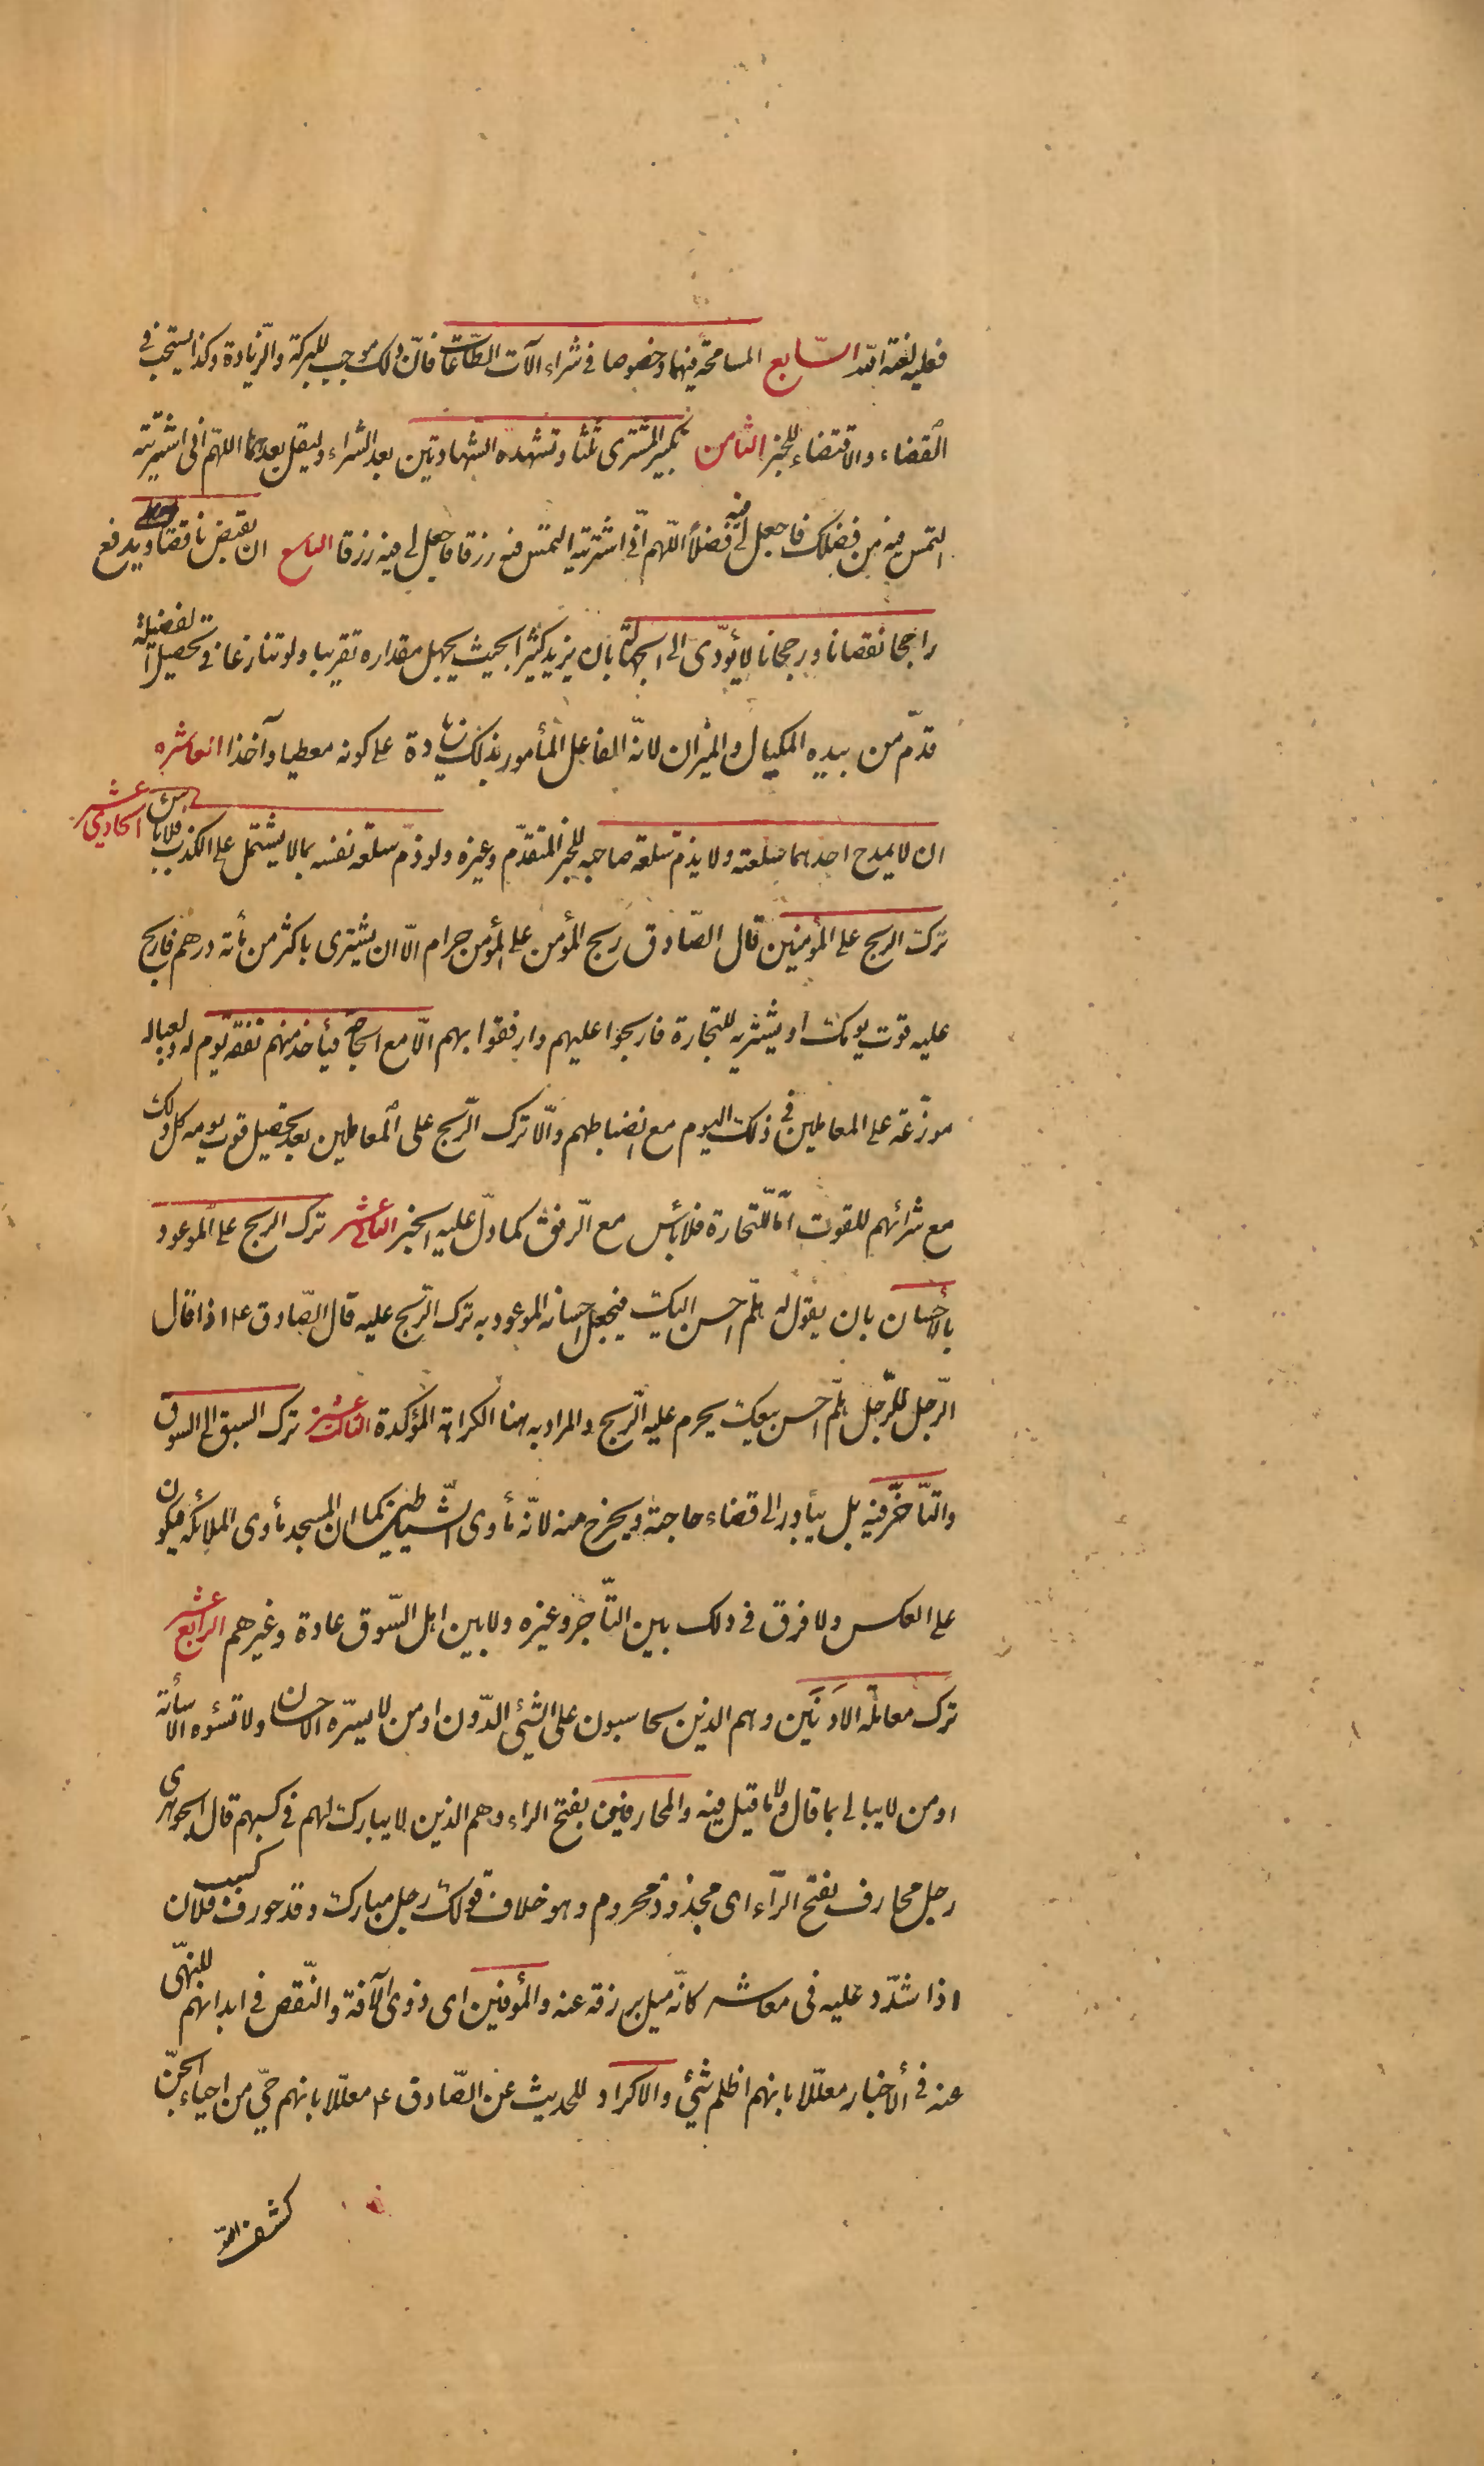 فعليه لعنة اللّه السّابع المسامحة فيهما وخصوصا فى شراء آلات الطّاعات فانّ ذلك موجب للبركة والزّيادة وكذا يستحبّ فى
القضاء والاقتضاء للخبر الثامن تكبير المشترى ثلثا وتشهده الشهادتين بعد الشراء وليقل بعدهما اللّهمّ انى اشتريته
التمس فيه من فضلك فاجعل لى فيه فضلاً اللّهمّ انّى اشتريته التمس فيه رزقا فاجعل لى فيه رزقا التاسع ان يقبض ناقصا ويدفع
راجحا نقصانا ورجحانا لا يؤدّى الى الجهالة بان يزيد كثيرا بحيث يجهل مقداره تقريبا ولو تنازعا فى تحصيل الفضيلة
قدّم من بيده المكيال والميزان لانّه الفاعل المأمور بذلك زيادة على كونه معطيا وآخذا العاشر
ان لا يمدح احدهما سلعته ولا يذمّ سلعة صاحبه للخبر المتقدّم وغيره ولو ذمّ سلعة نفسه بما لا يشتمل على الكذب فلا بأس الحادى عشر
ترك الربح على المؤمنين قال الصّادق ربح المؤمن على المؤمن حرام الّا ان يشترى باكثر من مأة درهم فاربح
عليه قوت يومك او يشتريه للتجارة فاربحوا عليهم وارفقوا بهم الّا مع الحاجة فيأخذ منهم نفقة يوم له ولعياله
موزّعة على المعاملين فى ذلك اليوم مع انضباطهم والّا ترك الرّبح على المعاملين بعد تحصيل قوت يومه كل ذلك
مع شرائهم للقوت امّا للتجارة فلا بأس مع الرّفق كما دلّ عليه الخبر الثانى عشر ترك الربح على الموعود
بالأحسان بان يقول له هلمّ احسن اليك فيجعل احسانه الموعود به ترك الرّبح عليه قال الصّادق ع اذا قال
الرّجل للرّجل هلمّ احسن بيعك يحرم عليه الرّبح والمراد به هنا الكراهة المؤكدة الثالث عشر ترك السبق الى السوق
والتأخّر فيه بل يبادر الى قضاء حاجته ويخرج منه لانّه مأوى الشّياطين كما ان المسجد مأوى الملائكة فيكون
على العكس ولا فرق فى ذلك بين التّاجر وغيره ولا بين اهل السّوق عادة وغيرهم الرابع عشر
ترك معاملة الادنَيَن وهم الذين يحاسبون على الشيئ الدّون او من لا يسرّه الاحسان ولا تسؤه الاسأئة
او من لا يبالى بما قال ولا ما قيل فيه والمحارفين بفتح الراء وهم الذين لا يبارك لهم فى كسبهم قال الجوهرى
رجل محارف بفتح الرّاء اى محدود محروم وهو خلاف قولك رجل مبارك وقد حورف كسب فلان
اذا شدّد عليه فى معاشه كانّه ميل برزقه عنه والمؤفين اى ذوى الآفة والنّقص فى ابدانهم للنهّى
عنه فى ألاخبار معلّلا بانهم اظلم شئ والاكراد للحديث عن الصّادق ع معلّلا بانهم حىّ من احياء الجنّ
كشف اللّه